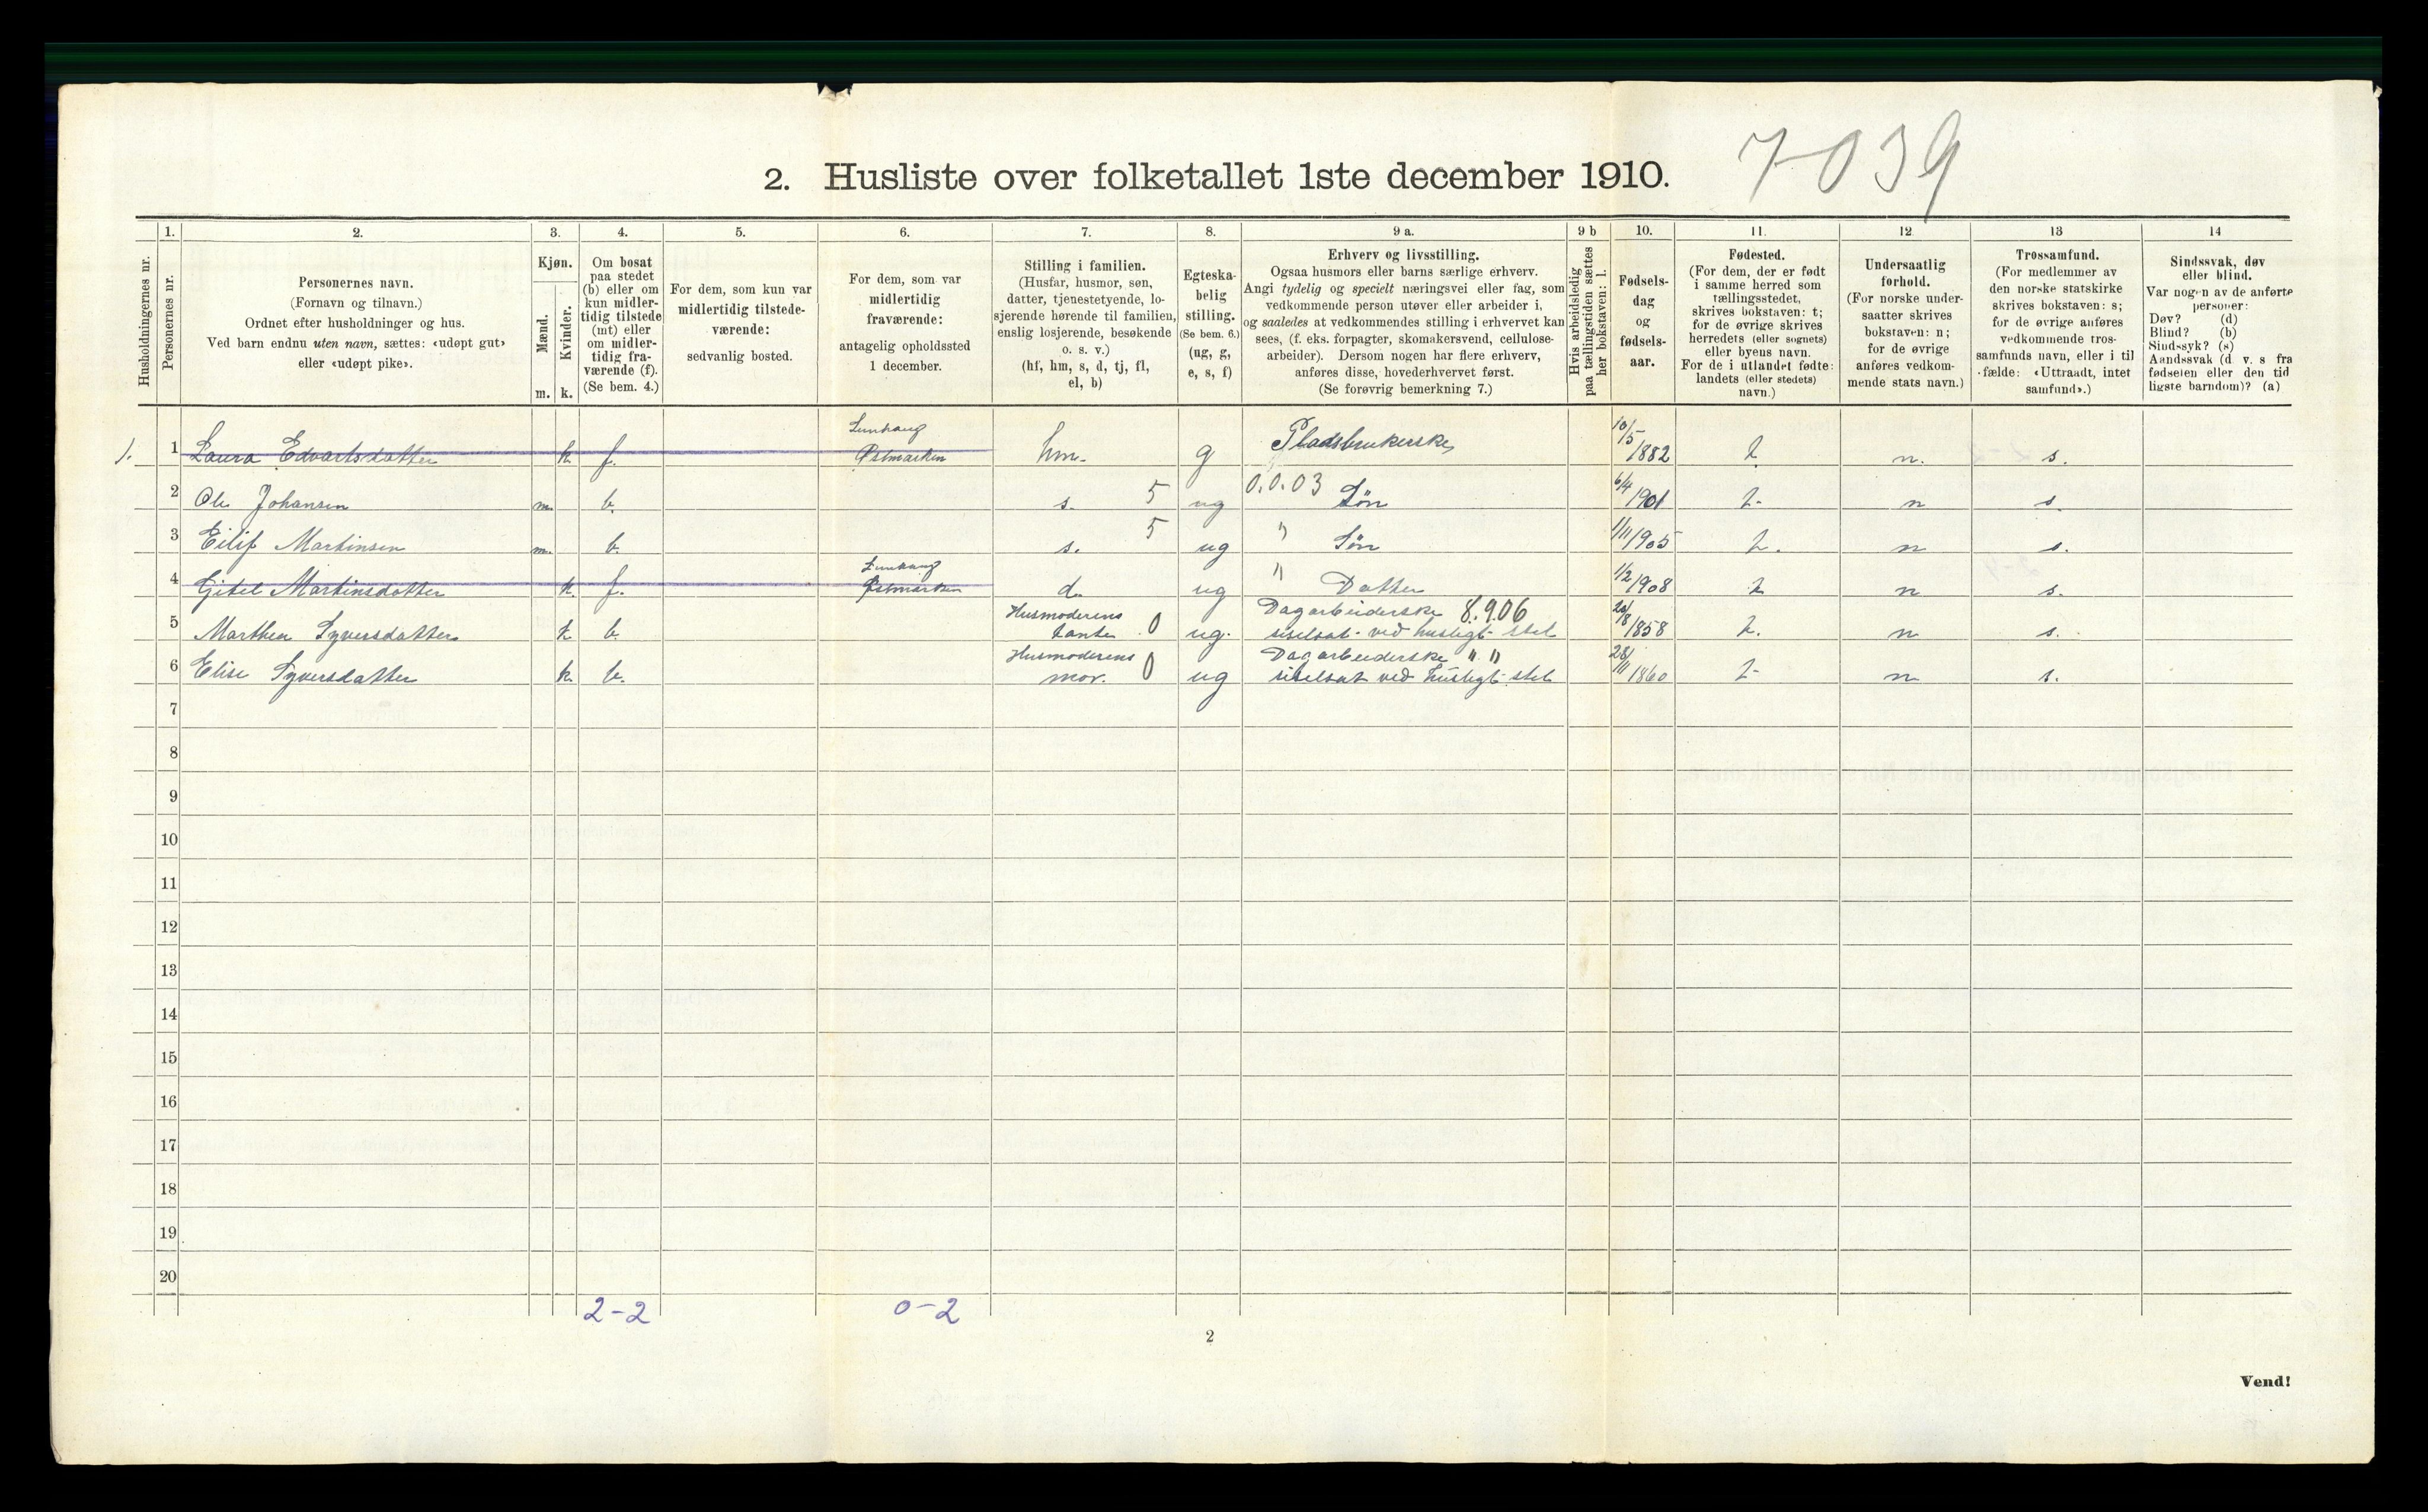 7-039
2. Husliste over folketallet 1ste december 1910.
Husholdningernes nr.
1.
Personernes nr.
2.
Personernes navn.
(Fornavn og tilnavn.)
Ordnet efter husholdninger og hus.
Ved barn endnu uten navn, sættes: «udøpt gut»
eller «udøpt pike».
3.
Kjøn.
Mænd.
Kvinder.
m. k.
4.
Om bosat
paa stedet
(b) eller om
kun midler-
tidig tilstede
(mt) eller
om midler-
tidig fra-
værende (f).
(Se bem. 4.)
5.
For dem, som kun var
midlertidig tilstede-
værende:
sedvanlig bosted.
6.
For dem, som var
midlertidig
fraværende:
antagelig opholdssted
1 december.
7.
Stilling i familien.
(Husfar, husmor, søn,
datter, tjenestetyende, lo-
sjerende hørende til familien,
enslig losjerende, besøkende
o. s. v.)
(hf, hm, s, d, tj, fl,
el, b)
8.
Egteska-
belig
stilling.
(Se bem. 6.)
(ug, g,
e, s, f)
9 a.
Erhverv og livsstilling.
Ogsaa husmors eller barns særlige erhverv.
Angi tydelig og specielt næringsvei eller fag, som
vedkommende person utøver eller arbeider i,
og saaledes at vedkommendes stilling i erhvervet kan
sees, (f. eks. forpagter, skomakersvend, cellulose-
arbeider). Dersom nogen har flere erhverv,
anføres disse, hovederhvervet først.
(Se forøvrig bemerkning 7.)
9 b
Hvis arbeidsledig
paa tællingstiden sættes
her bokstaven: l.
10.
Fødsels-
dag
og
fødsels-
aar.
11.
Fødested.
(For dem, der er født
i samme herred som
tællingsstedet,
skrives bokstaven: t;
for de øvrige skrives
herredets (eller sognets)
eller byens navn.
For de i utlandet fødte:
landets (eller stedets)
navn.)
12
Undersaatlig
forhold.
(For norske under-
saatter skrives
bokstaven: n;
for de øvrige
anføres vedkom-
mende stats navn.)
13
Trossamfund.
(For medlemmer av
den norske statskirke
skrives bokstaven: s;
for de øvrige anføres
vedkommende tros-
samfunds navn, eller i til
fælde: «Uttraadt, intet
samfund».)
14
Sindssvak, døv
eller blind.
Var nogen av de anførte
personer:
Døv? (d)
Blind? (b)
Sindssyk? (s)
Aandssvak (d v. s fra
fødselen eller den tid
ligste barndom)? (a)
1. 1 Laura Edvartsdatter k. f. Østmarken hm. g Pladsbrukerske 10/5 1882 t. n. s.
2 Ole Johansen m. b. s. 5 ug 0.0.03 Søn 6/4 1901 t. n s.
3 Eilif Martinsen m. b. s. 5 ug " Søn 1/11 1905 t. n s.
4 Gitel Martinsdatter k. f. Østmarken d. ug " Datter 1/2 1908 t n s.
5 Marthea Syversdatter k b. Husmoderens tante 0 ug. Dagarbeiderske 8.9.06 siselsat ved husligt stel 20/8 1858 t. n s.
6 Elise Syversdatter k. b. Husmoderens mor. 0 ug Dagarbeiderske " " siselsat ved husligt stel 28/11 1860 t. n s.
7
8
9
10
11
12
13
14
15
16
17
18
19
20
2-2 0-2
2
Vend!